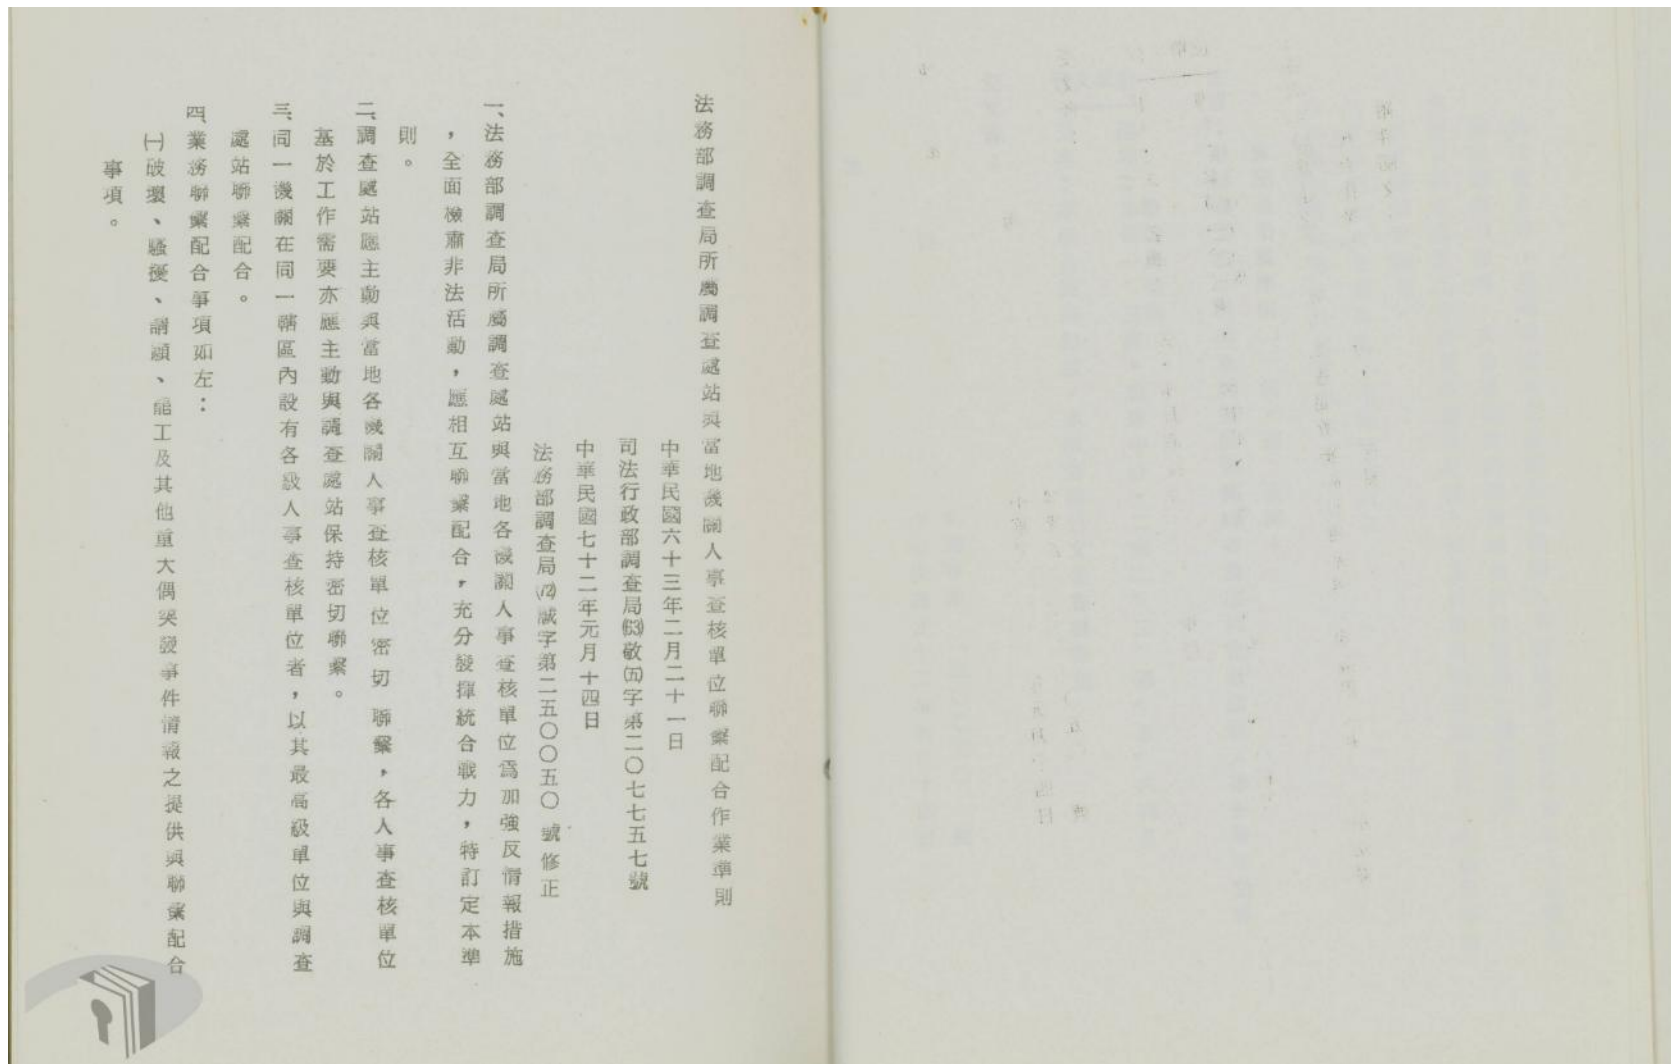 法務部調查局所屬調查處站與當地機關人事查核單位聯繫配合作業準則
中華民國六十三年二月二十一日
司法行政部調查局(63)敬(五)字第二〇七七五七號
中華民國七十二年元月十四日
法務部調查局(72)誠字第二五〇〇五〇號修正
一、法務部調查局所屬調查處站與當地各機關人事查核單位為加強反情報措施
，全面檢肅非法活動，應相互聯繫配合，充分發揮統合戰力，特訂定本準
則。
二、調查處站應主動與當地各機關人事查核單位密切聯繫，各人事查核單位
基於工作需要亦應主動與調查處站保持密切聯繫。
三、同一機關在同一轄區內設有各級人事查核單位者，以其最高級單位與調查
處站聯繫配合。
四、業務聯繫配合事項如左：
㈠破壞、騷擾、請願、罷工及其他重大偶突發事件情報之提供與聯繫配合
事項。